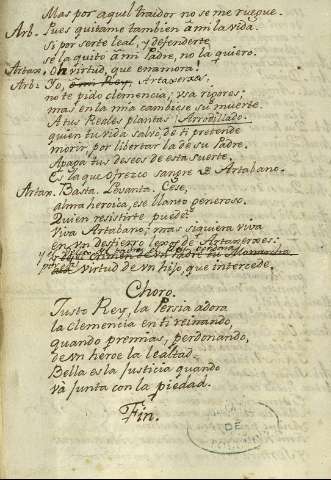 Mas por aquel traidor no se me ruegue.
Arb. Pues quitame tambien â mi la vida.
Si por serte leal, y defenderte
se la quito â mi Padre, no la quiero.
Artax. Oh virtud, que enamora!
Arb. Yo, ô mi Rey, Artaxerxas,
no te pido clemencia; usa rigores;
mas en la mia cambiese su muerte.
A tus Reales plantas Arrodillado.
quien tu vida salvó, de ti pretende
morir, por libertar la de su Padre.
Apaga tus deseos de esta suerte.
Es la que ofrezco sangre de Artabano.
Artax. Basta. Levanta. Cese,
alma heroica, ese llanto generoso.
Quien resistirte puede?
Viva Artabano; mas siquiera viva
en un destierro lexos de Artaxerxes:
y el Padre
su Monarcha
virtud de un hijo, que intercede.
Choro.
Justo Rey, la Persia adora
la clemencia en ti reinando,
quando premias, perdonando,
de un héroe la lealtad.
Bella es la Justicia quando
vâ junta con la piedad.
Fin.
DE